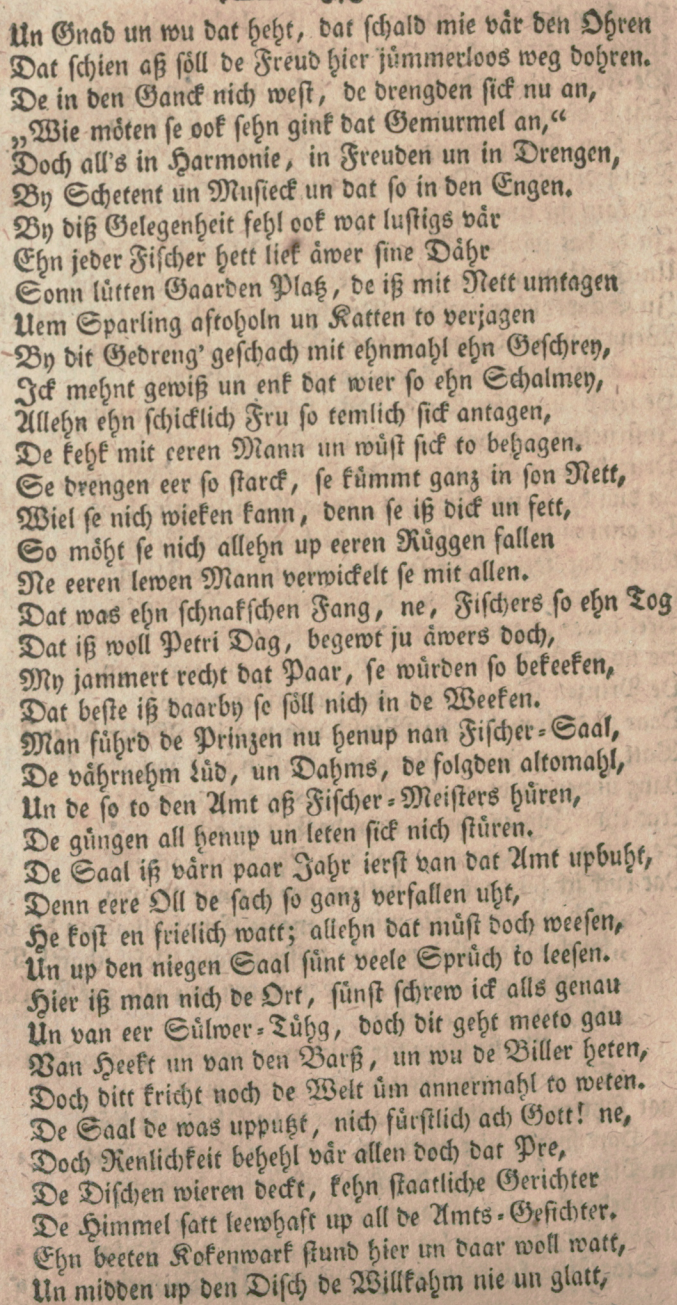 Un Gnad un wu dat heht, dat schald mie vär den Ohren
Dat schien aß söll de Freud hier jümmerloos weg dohren.
De in den Ganck nich west, de drengden sick nu an,
„Wie möten se ook sehn gink dat Gemurmel an,“
Doch all's in Harmonie, in Freuden un in Drengen,
By Schetent un Musieck un dat so in den Engen.
By diß Gelegenheit fehl ook wat lustigs vär
Ehn jeder Fischer hett liek äwer sine Dähr
Sonn lütten Gaarden Platz, de iß mit Nett umtagen
Uem Sparling aftoholn un Katten to verjagen
By dit Gedreng' geschach mit ehnmahl ehn Geschrey,
Ick mehnt gewiß un enk dat wier so ehn Schalmey,
Allehn ehn schicklich Fru so temlich sick antagen,
De kehk mit eeren Mann un wüst sick to behagen.
Se drengen eer so starck, se kümmt ganz in son Nett,
Wiel se nich wieken kann, denn se iß dick un fett,
So möht se nich allehn up eeren Rüggen fallen
Ne eeren lewen Mann verwickelt se mit allen.
Dat was ehn schnakschen Fang, ne, Fischers so ehn Tog
Dat iß woll Petri Dag, begewt ju äwers doch,
My jammert recht dat Paar, se würden so bekeeken,
Dat beste iß daarby se söll nich in de Weeken.
Man führd de Prinzen nu henup nan Fischer-Saal,
De vährnehm Lüd, un Dahms, de folgden altomahl,
Un de so to den Amt aß Fischer-Meisters hüren,
De güngen all henup un leten sick nich stüren.
De Saal iß värn paar Jahr ierst van dat Amt upbuht,
Denn eere Oll de sach so ganz verfallen uht,
He kost en frielich watt; allehn dat müst doch weesen,
Un up den niegen Saal sünt veele Sprüch to leesen.
Hier iß man nich de Ort, sünst schrew ick alls genau
Un van eer Sülwer-Tühg, doch dit geht meeto gau
Van Heekt un van den Barß, un wu de Biller heten,
Doch ditt kricht noch de Welt üm annermahl to weten.
De Saal de was upputzt, nich fürstlich ach Gott! ne,
Doch Renlichkeit behehl vär allen doch dat Pre,
De Dischen wieren deckt, kehn staatliche Gerichter
De Himmel satt leewhaft up all de Amts-Gesichter.
Ehn beeten Kokenwark stund hier un daar woll watt,
Un midden up den Disch de Willkahm nie un glatt,